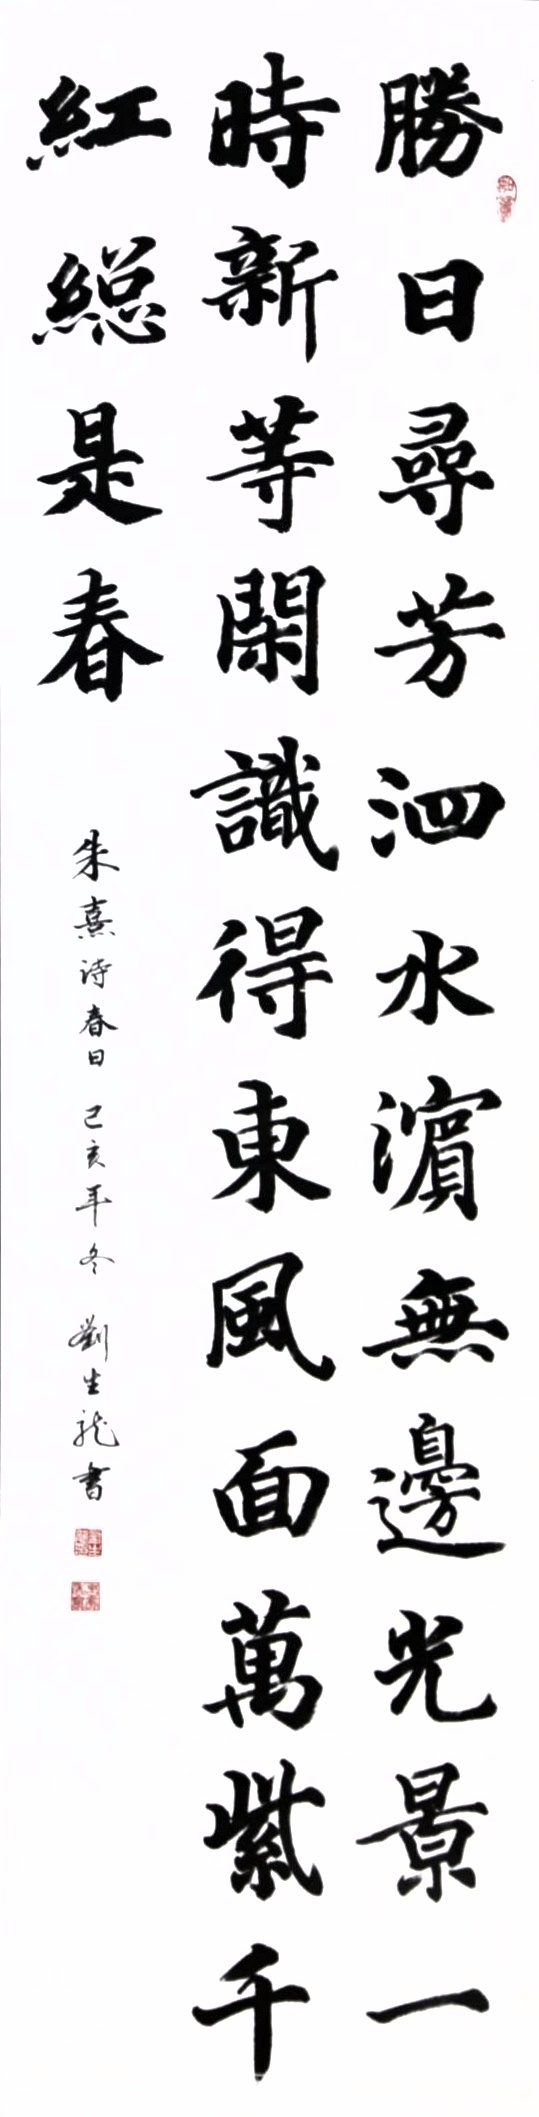 勝日尋芳泗水濱無邊光景一
時新等閑識得東風面萬紫千
紅緫是春
朱熹诗春日 己亥年冬 劉生龍書